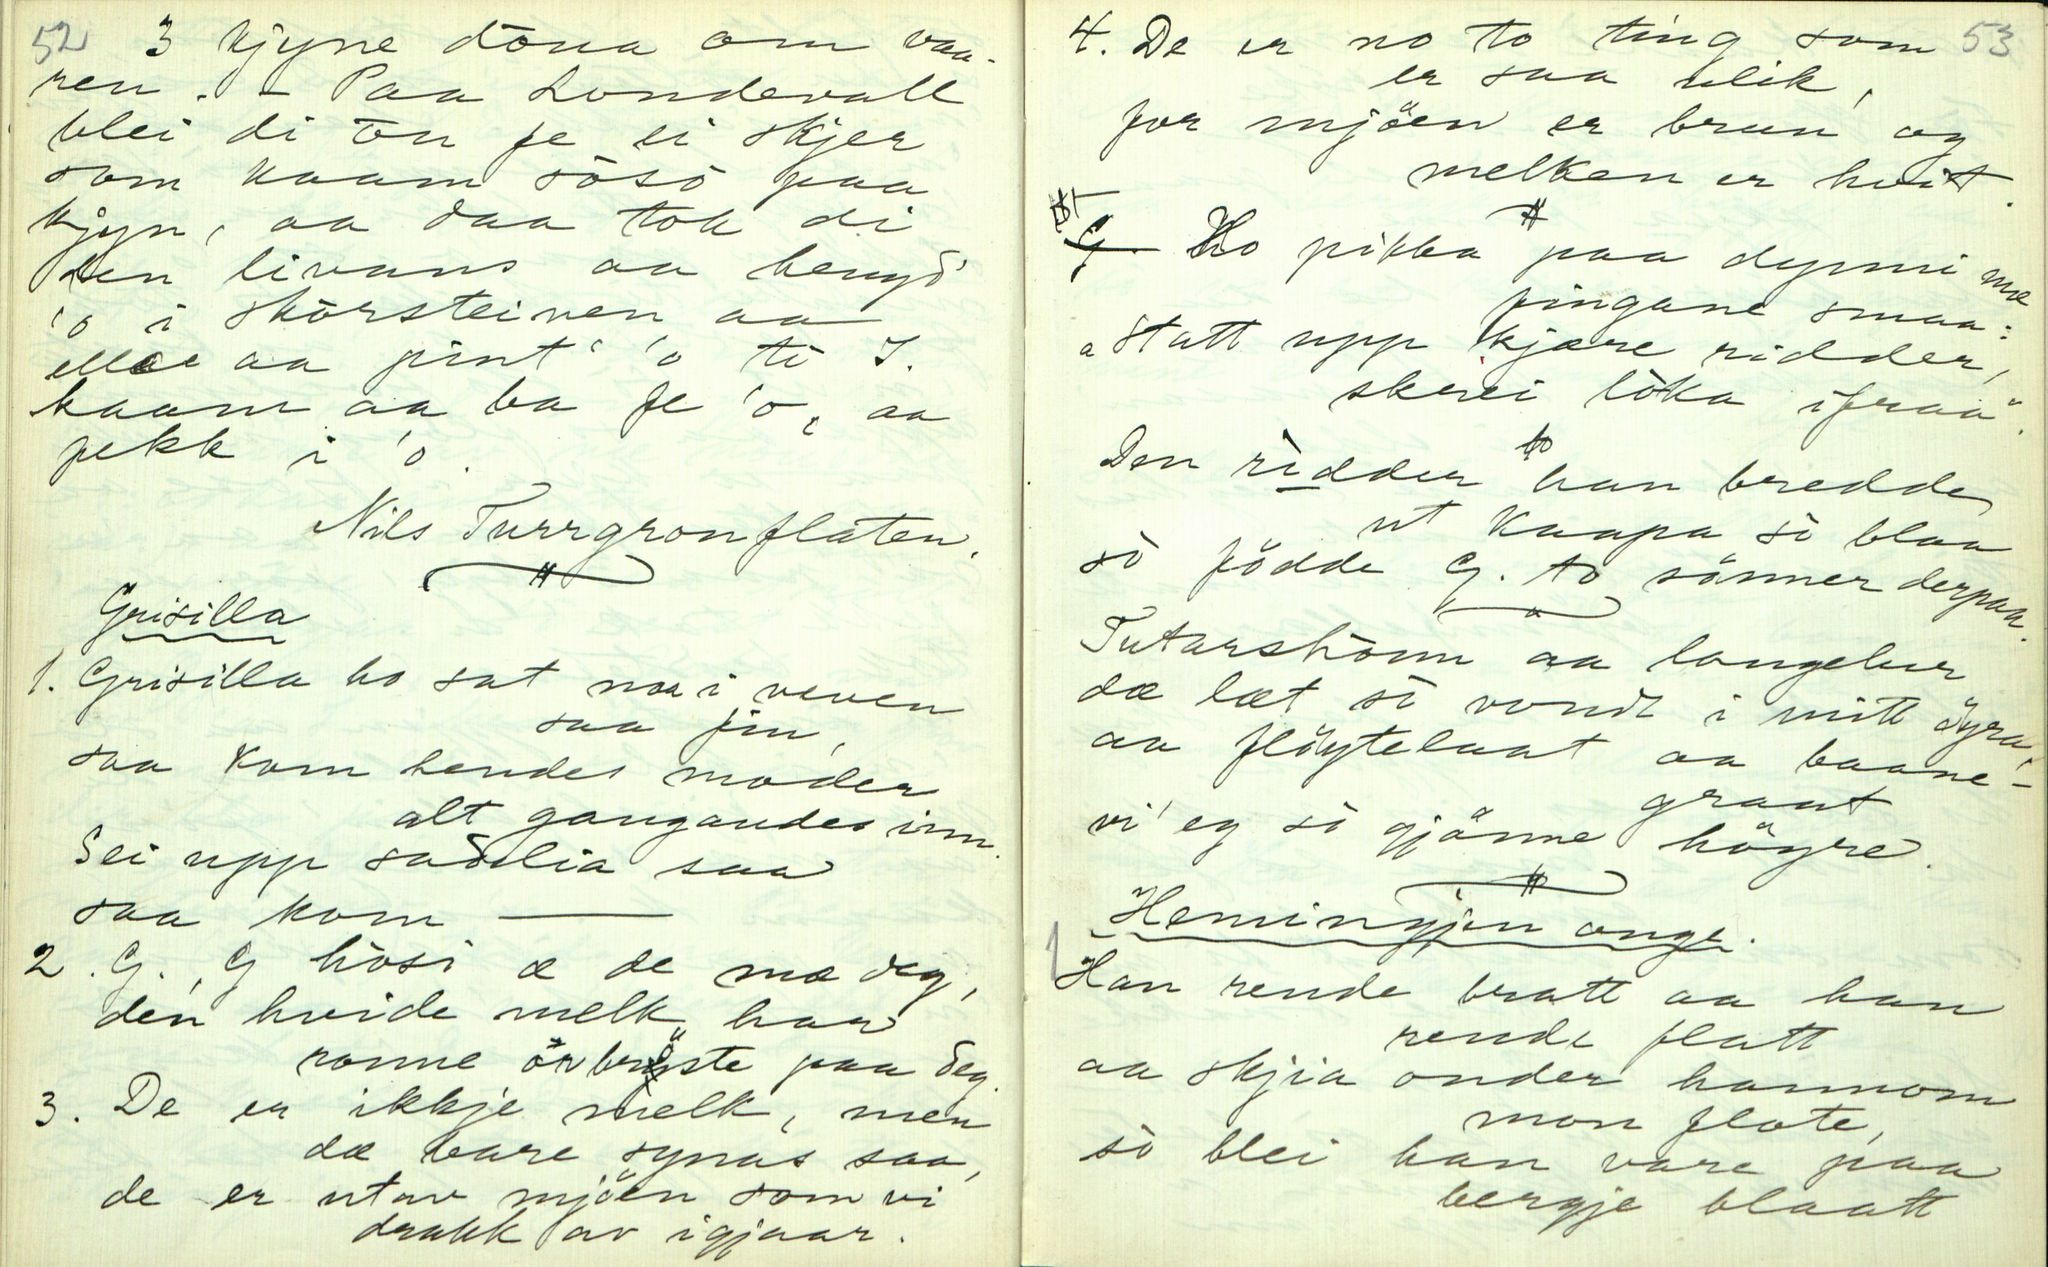 52
3 kjyne döua om vaa-
ren. - Paa Londevall
blei di ön fe ei skjer
som kaam sösö paa
kjyn, aa daa tok di
den livans aa hengd'
'o i skörsteinen aa
elleе aa pint' 'o te J.
kaam aa ba fe 'o, aa
fekk i 'o.
Nils Turrgronflaten.
Grisilla
1. Grisilla ho sat næ i veven
saa fin,
saa kom hendes moder
alt gangandes inn.
Sei upp sadlia saa
saa kom
2. G., G hösi æ de mæ deg,
den hvide melk har
ronne örbryste paa deg.
3. De er ikkje melk, men
dæ bare synas saa,
de er utav mjöen som vi
drakk av igjaar.
53
4. De er no to ting som
er saa ulik,
for mjöen er brun og
melken er hvit.
G Ho pikka paa dynni mæ
fingane smaa:
a Statt upp kjære ridder,
skrei löka ifraa".
Den ridder han bredde
ut kaapa si blaa
sö födde G. to sönner derpaa.
Tutarshönn aa langelur
dæ læt sö vondt i mitt öyra
aa flöytelaat aa baane-
graat
vi' eg so gjönne höyre.
Hemingjen onge.
1
Han rende bratt aa han
rende flatt
aa skjia onder hannom
mon flote,
sö blei han vare paa
bergje blaatt